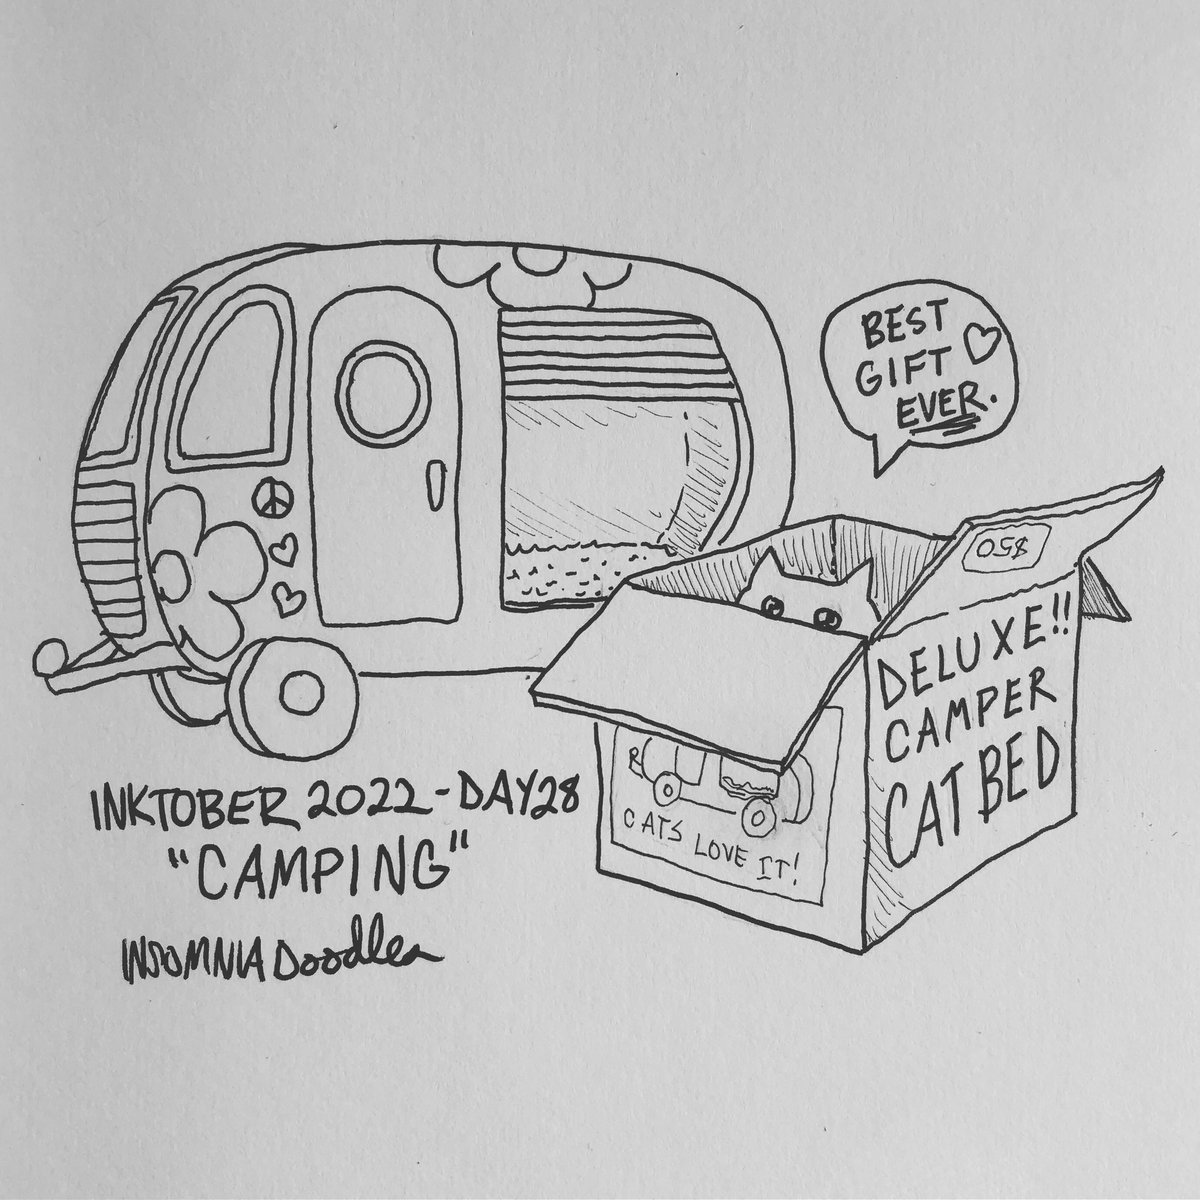 BEST
GIFT
EVER.
$50
DELUXE!!
CAMPER
CAT BED
CATS LOVE IT!
INKTOBER 2022 - DAY 28
"CAMPING"
INSOMNIA Doodles